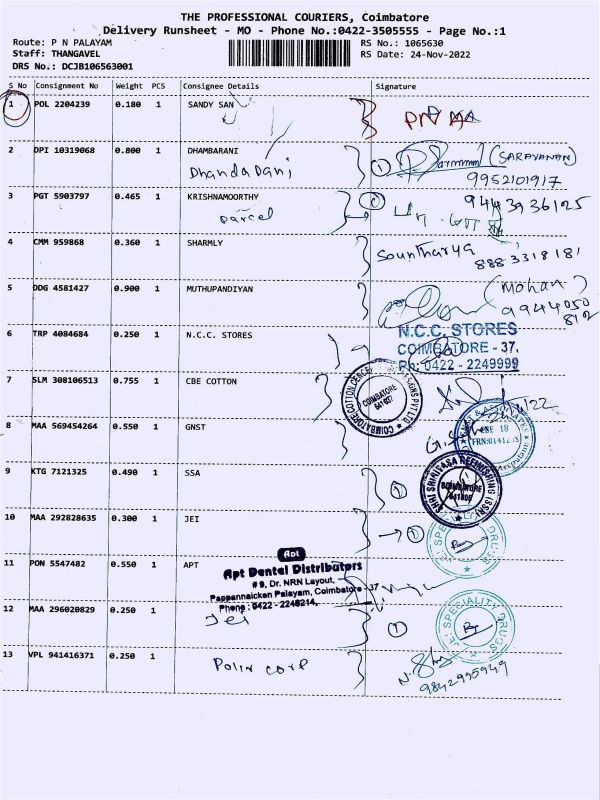 THE PROFESSIONAL COURIERS, Coimbatore
Delivery Runsheet - MO - Phone No.:0422-3505555 - Page No.:1
Route: P N PALAYAM
Staff: THANGAVEL
DRS No.: DCJB106563001
RS No.: 1065630
RS Date: 24-Nov-2022
S No Consignment No Weight PCS Consignee Details Signature
1 POL 2204239 0.180 1 SANDY SAN
2 DPI 10319068 0.800 1 DHAMBARANI
Dhandapani
(SARAVANAN)
9952101917
3 PGT 5903797 0.465 1 KRISHNAMOORTHY
parcel
9443936125
4 CMM 959868 0.360 1 SHARMLY
Sountharya
888 3318 181
5 DDG 4581427 0.900 1 MUTHUPANDIYAN
(Mohan)
9944050
812
6 TRP 4084684 0.250 1 N.C.C. STORES
N.C.C. STORES
COIMBATORE - 37.
Ph: 0422 - 2249999
7 SLM 308106513 0.755 1 CBE COTTON
COIMBATORE
641037
8 MAA 569454264 0.550 1 GNST
9 KTG 7121325 0.490 1 SSA
SHRI SRINIVASA REFINISHING (SSR)
COIMBATORE
10 MAA 292828635 0.300 1 JEI
11 PON 5547482 0.550 1 APT
Apt
Apt Dental Distributors
# 9, Dr. NRN Layout,
Pappannaicken Palayam, Coimbatore - 37
Phone : 0422 - 2246214,
12 MAA 296020829 0.250 1
Jei
SPECIALITY DRUGS
13 VPL 941416371 0.250 1
Polin corp
9842995949